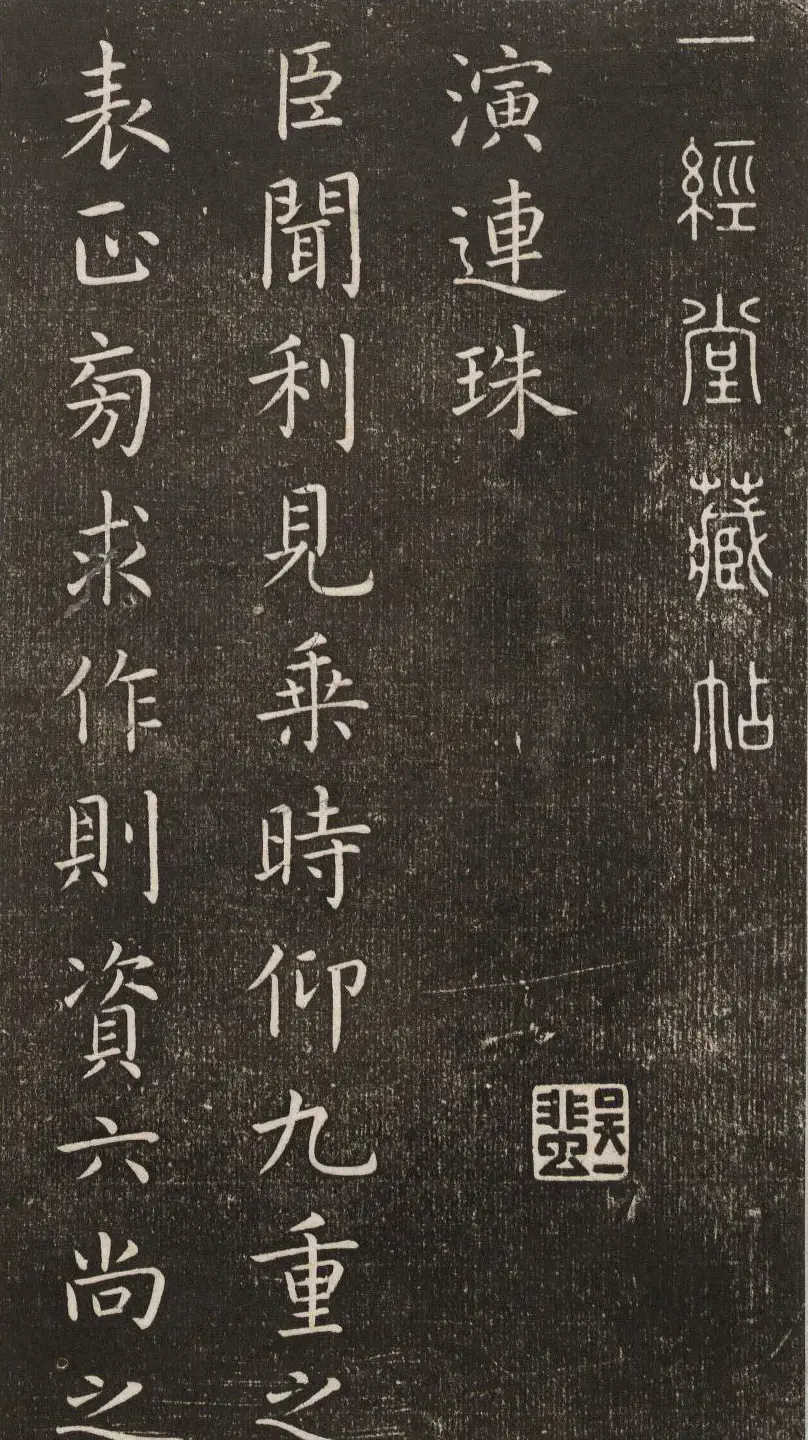 一經堂藏帖
演連珠
臣聞利見乗時仰九重之
表正旁求作則資六尚之
吳一蜚